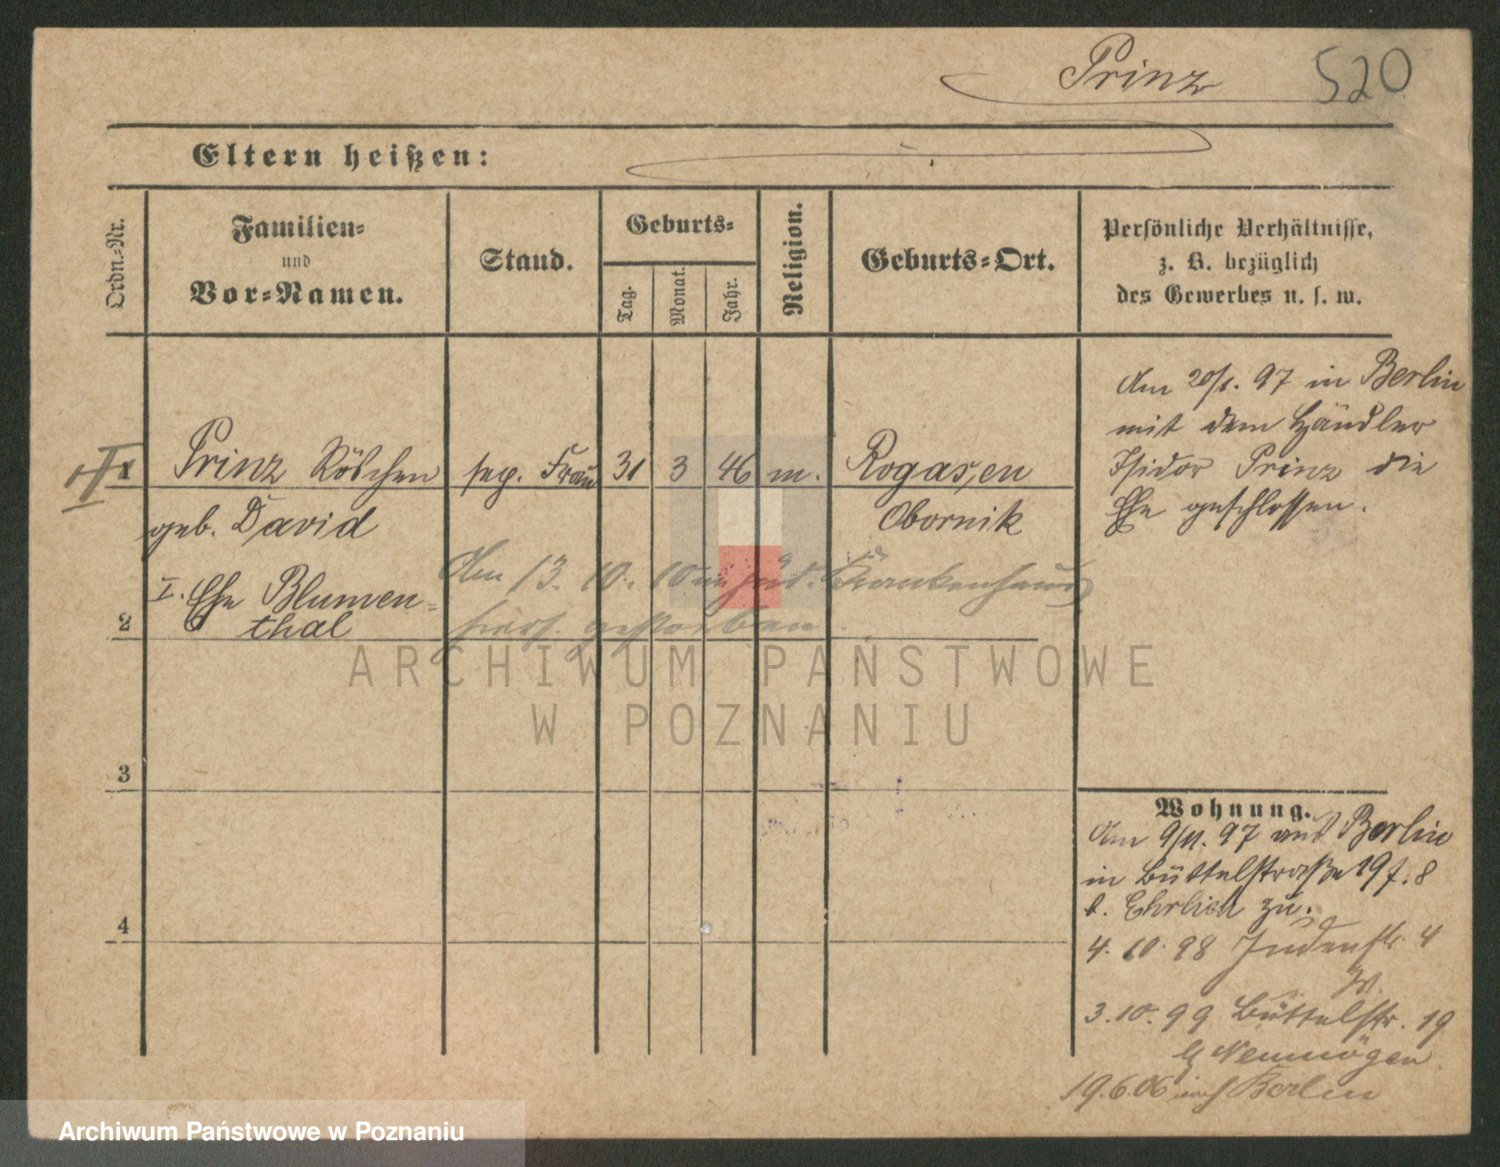 Prinz 520
Eltern heißen:
Ordn.-Nr.
Familien-
und
Vor-Namen.
Stand.
Geburts-
Tag.
Monat.
Jahr.
Religion.
Geburts-Ort.
Persönliche Verhältnisse,
z. B. bezüglich
des Gewerbes u. s. w.
Am 20/1. 97 in Berlin
mit dem Händler
Isidor Prinz die
Ehe geschlossen.
1 Prinz Röschen sep. Frau 31 3 46 m. Rogasen
geb. David Obornik
I. Ehe Blumen-
2 thal
Am 13. 10. 10 im jüd. Krankenhaus
hiers. gestorben.
ARCHIWUM PAŃSTWOWE
W POZNANIU
3
4
Wohnung.
Am 9/11. 97 aus Berlin
in Büttelstraße 19 f. 8
b. Ehrlich zu.
4. 10. 98 Judenstr. 4
W.
3. 10. 99 Büttelstr. 19
Neumögen
19.6.06 nach Berlin
Archiwum Państwowe w Poznaniu